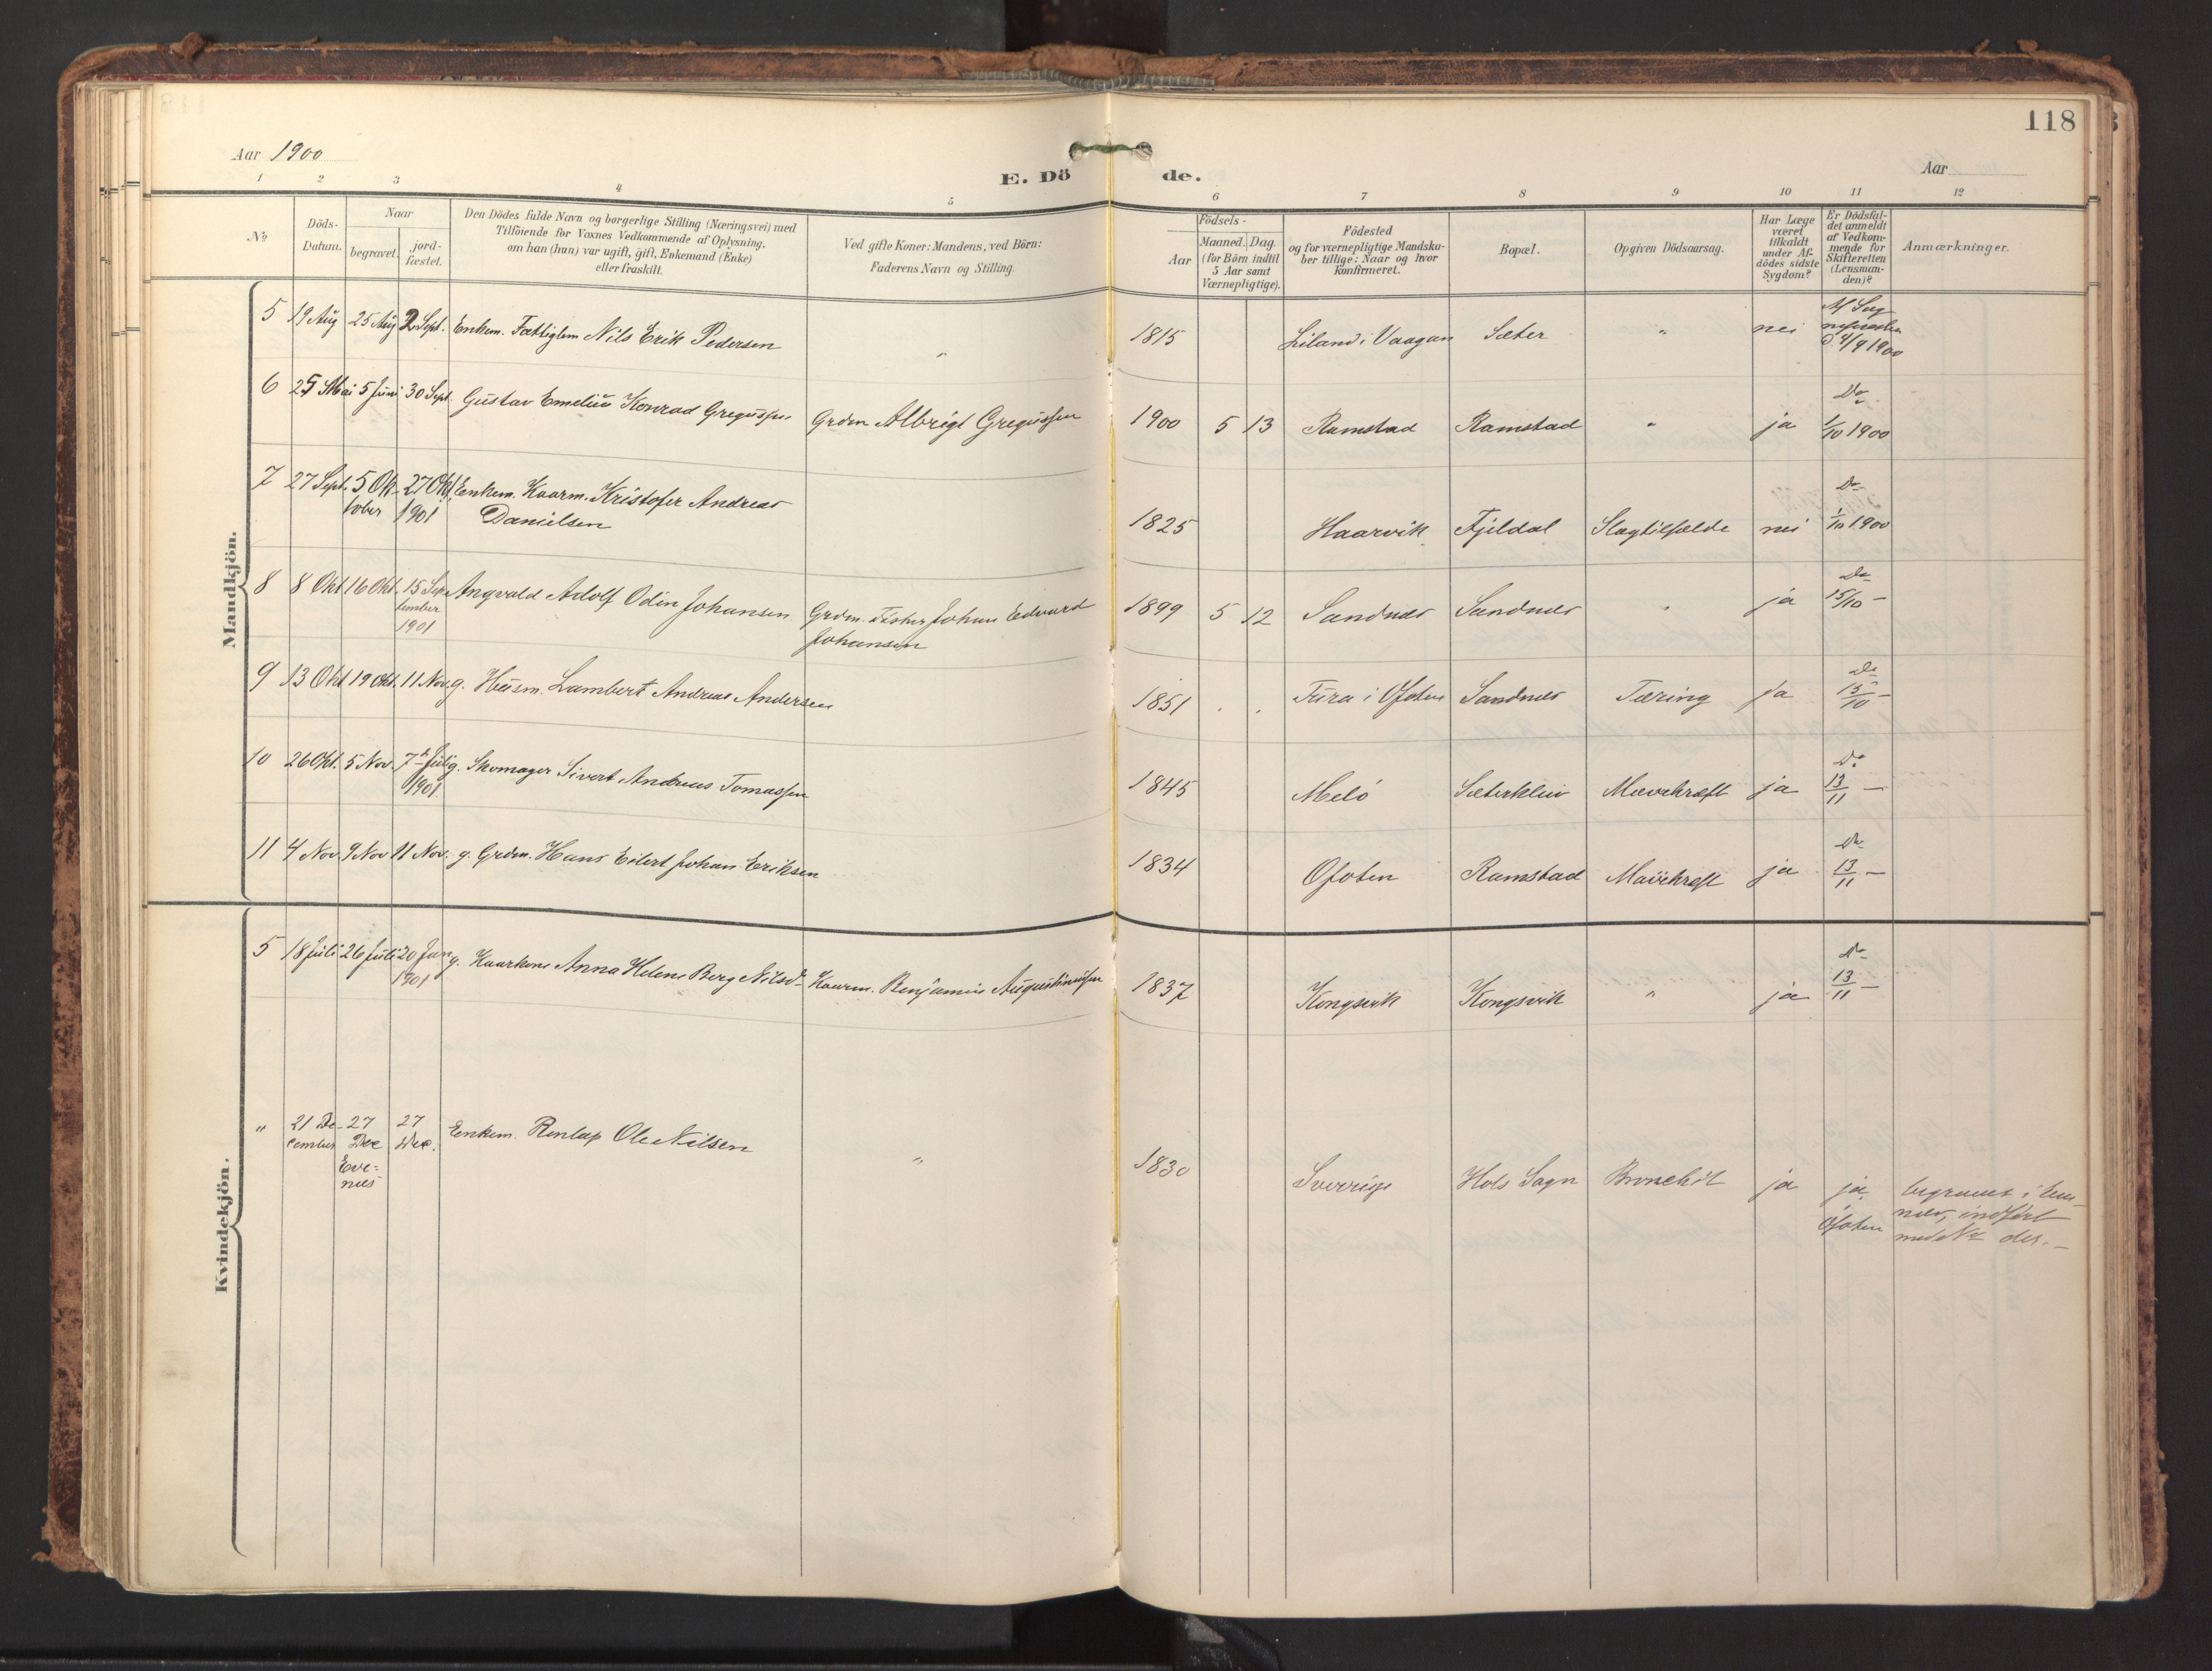 118
Aar 1900
Aar
E. Dö de.
1 2 3 4 5 6 7 8 9 10 11 12
No
Döds-
Datum.
Naar
begravet.
jord-
fæstet.
Den Dödes fulde Navn og borgerlige Stilling (Næringsvei) med
Tilföiende for Voxnes Vedkommende af Oplysning,
om han (hun) var ugift, gift, Enkemand (Enke)
eller fraskilt.
Ved gifte Koner: Mandens, ved Börn:
Faderens Navn og Stilling.
Födsels-
Aar
Maaned. Dag.
(for Börn indtil
5 Aar samt
Værnepligtige).
Födested
og for værnepligtige Mandska-
ber tillige: Naar og hvor
Konfirmeret.
Bopæl.
Opgiven Dödsaarsag.
Har Læge
været
tilkaldt
under Af-
dödes sidste
Sygdom?
Er Dödsfal-
det anmeldt
af Vedkom-
mende for
Skifteretten
(Lensman-
den)?
Anmærkninger.
Mandkjön.
5 19 Aug 25 Aug 2 Sept. Enkem. Fattiglem Nils Erik Pedersen " 1815 Liland i Vaagan Sæter " nei
4/9 1900
6 25 Mai 5 Juni 30 Sept. Gustav Emelius Konrad Gregussen Grdm Albrigt Gregussen 1900 5 13 Ramstad Ramstad " ja Do
1/10 1900
7 27 Sept. 5 Ok- 27 Okt. Enkem. Kaarm. Kristofer Andreas
tober 1901 Danielsen 1825 Haarvik Fjeldal Slagtilfælde nei Do 1/10 1900
8 8 Okt 16 Okt. 15 Sep- Angvald Adolf Odin Johansen Grdm. Fisker Johan Edvard 1899 5 12 Sandnes Sandnes " ja Do 15/10 -
tember Johansen
1901
9 13 Okt 19 Okt. 11 Nov. g. Husm. Lambert Andreas Andersen 1851 . . Fura i Ofoten Sandnes Tæring ja Do 13/10 -
10 26 Okt. 5 Nov. 7de Juli g. Skomager Sivert Andreas Tomassen 1845 Melö Sæterkleiv Mavekræft ja Do 13/11 -
1901
11 4 Nov. 9 Nov 11 Nov. g. Grdm. Hans Eilert Johan Eriksen 1834 Ofoten Ramstad Mavekræft ja Do 13/11 -
Kvindekjön.
5 18 Juli 26 Juli 20 Jan g. Kaarkone Anna Helene Berg Nilsd. Kaarm. Benjamin Augustinussen 1837 Kongsvik Kongsvik " ja Do 13/11 -
1901
" 21 De- 27 27 Enkem. Renlap Ole Nilsen " 1830 Sverrige Hols Sogn Bronchit ja ja begravet i Eve-
cember Dec Dec. Ofoten nes, indfört
Eve= med No der. -
nes